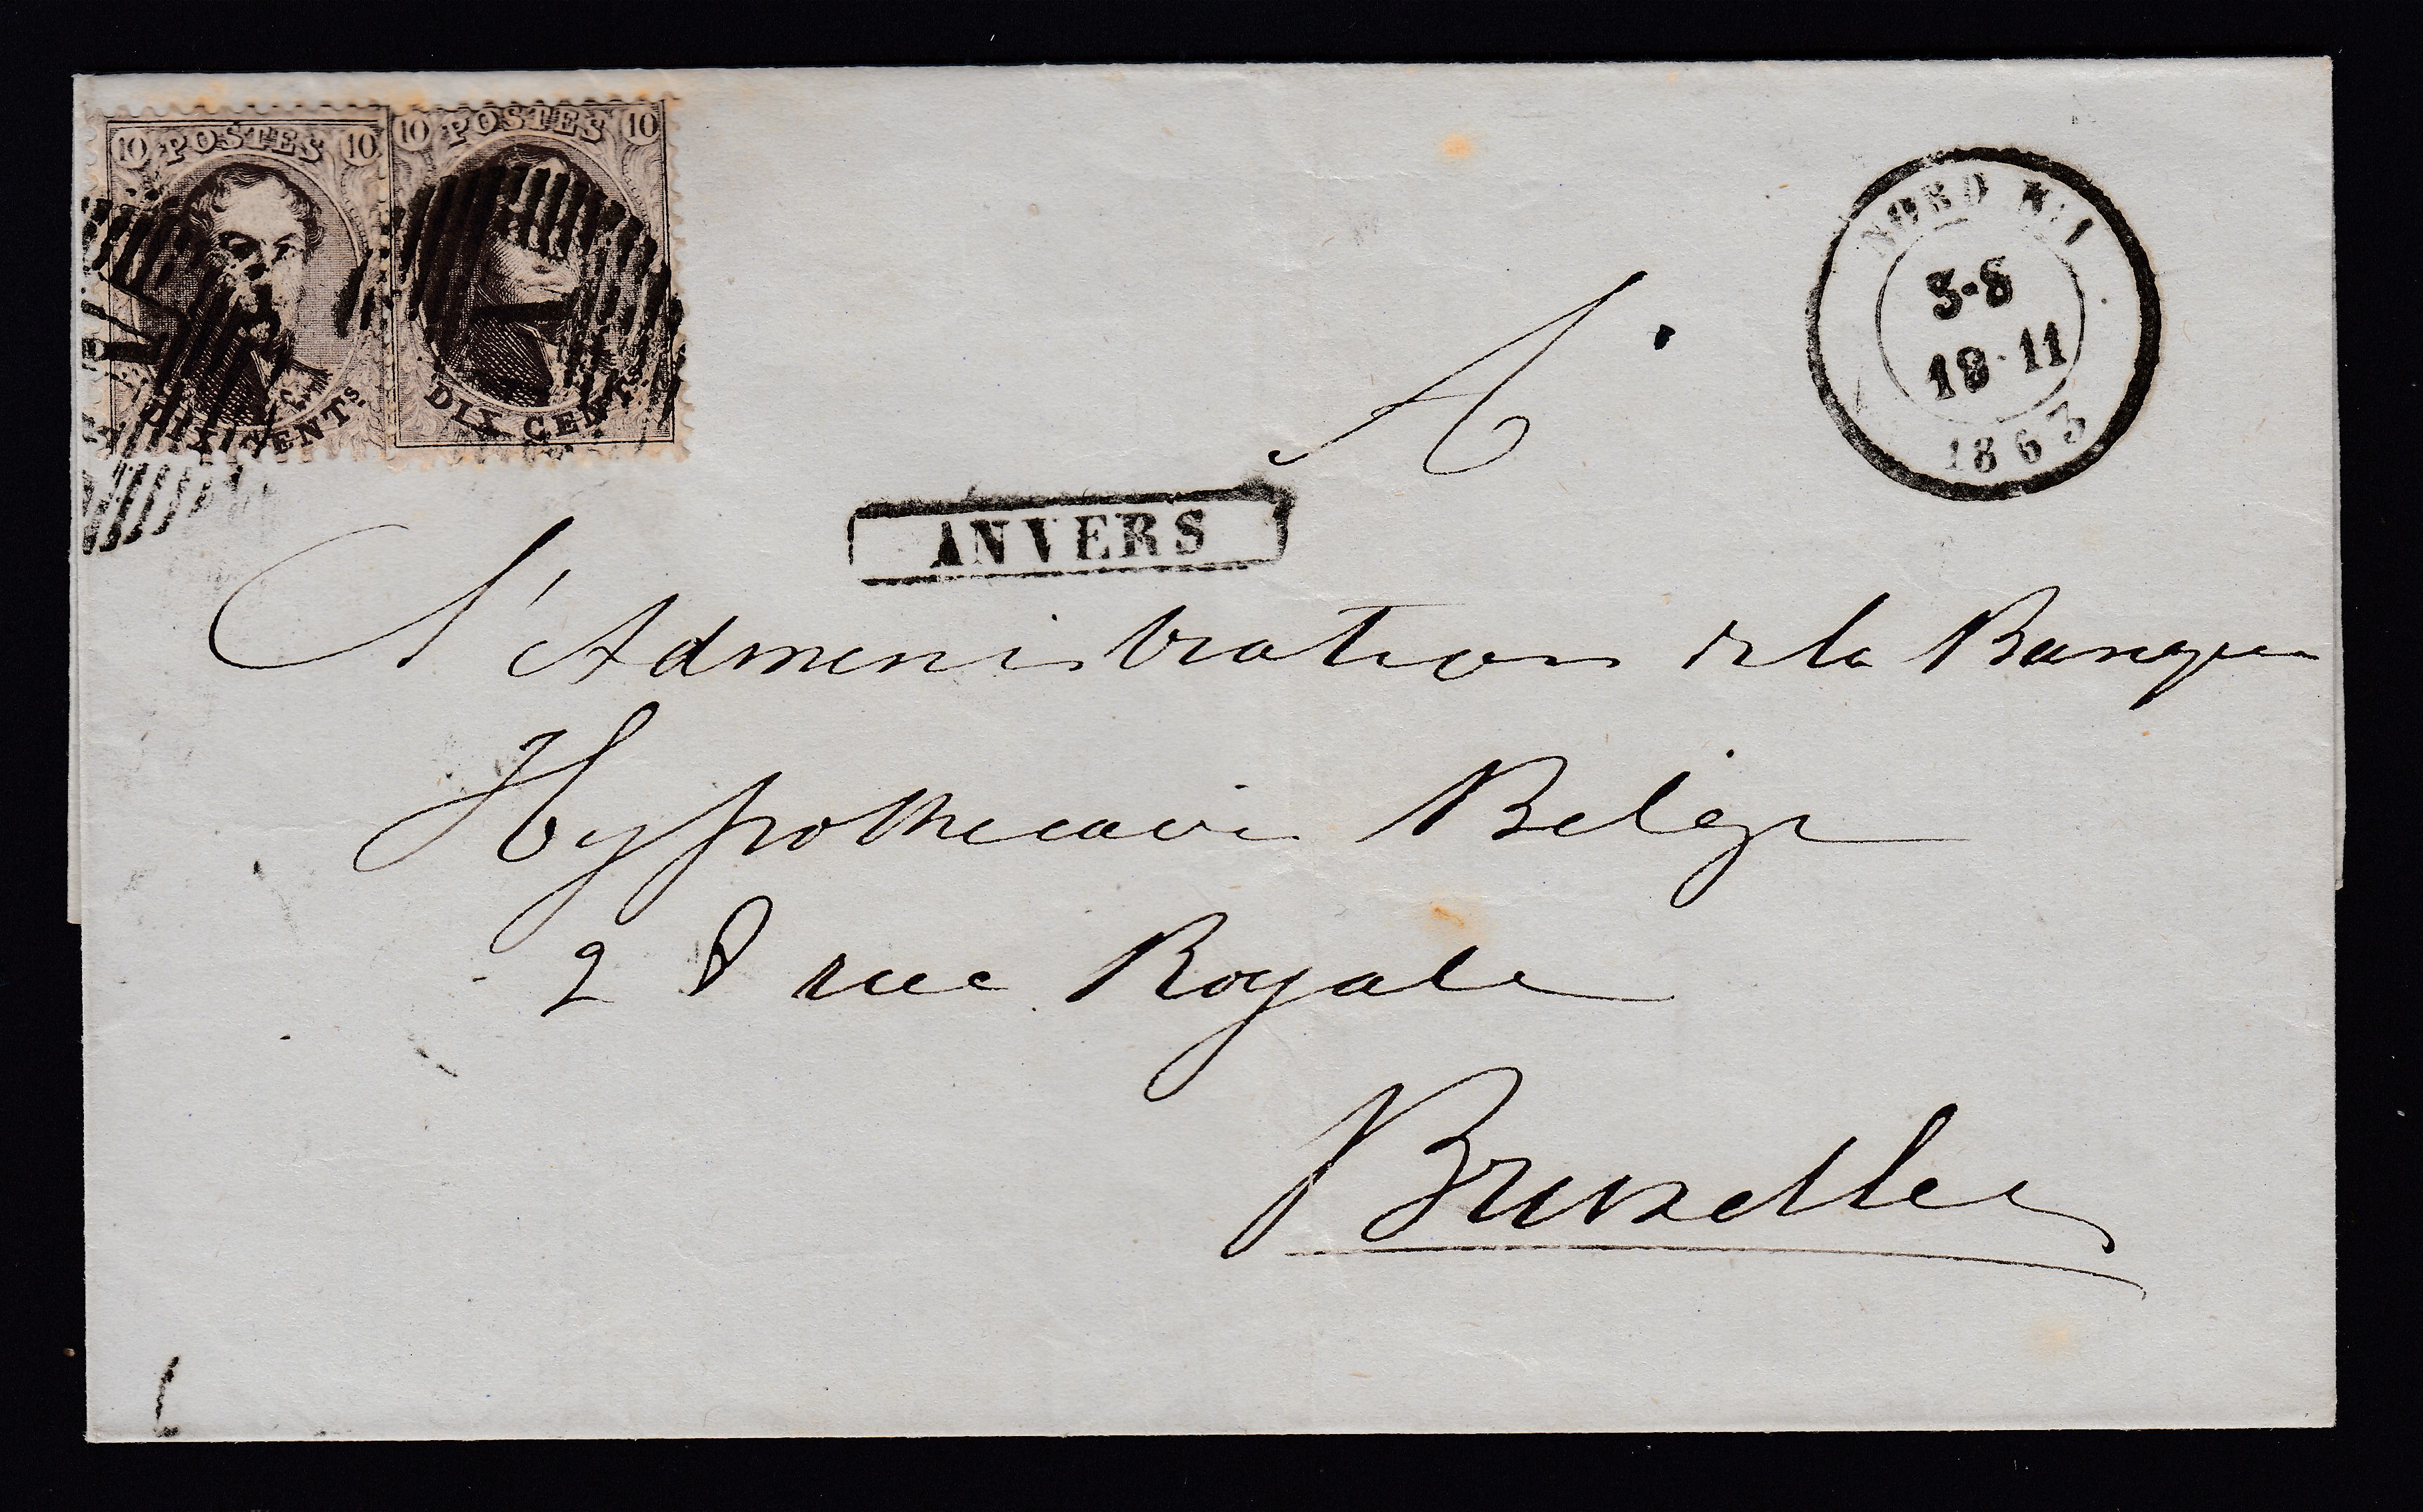 10 POSTES 10
DIX CENTS.
10 POSTES 10
DIX CENTS.
NORD N°1
3-S
18·11
1863
A
ANVERS
l'Administration de la Banque
Hypothecaire Belge
28 rue Royale
Bruxelles